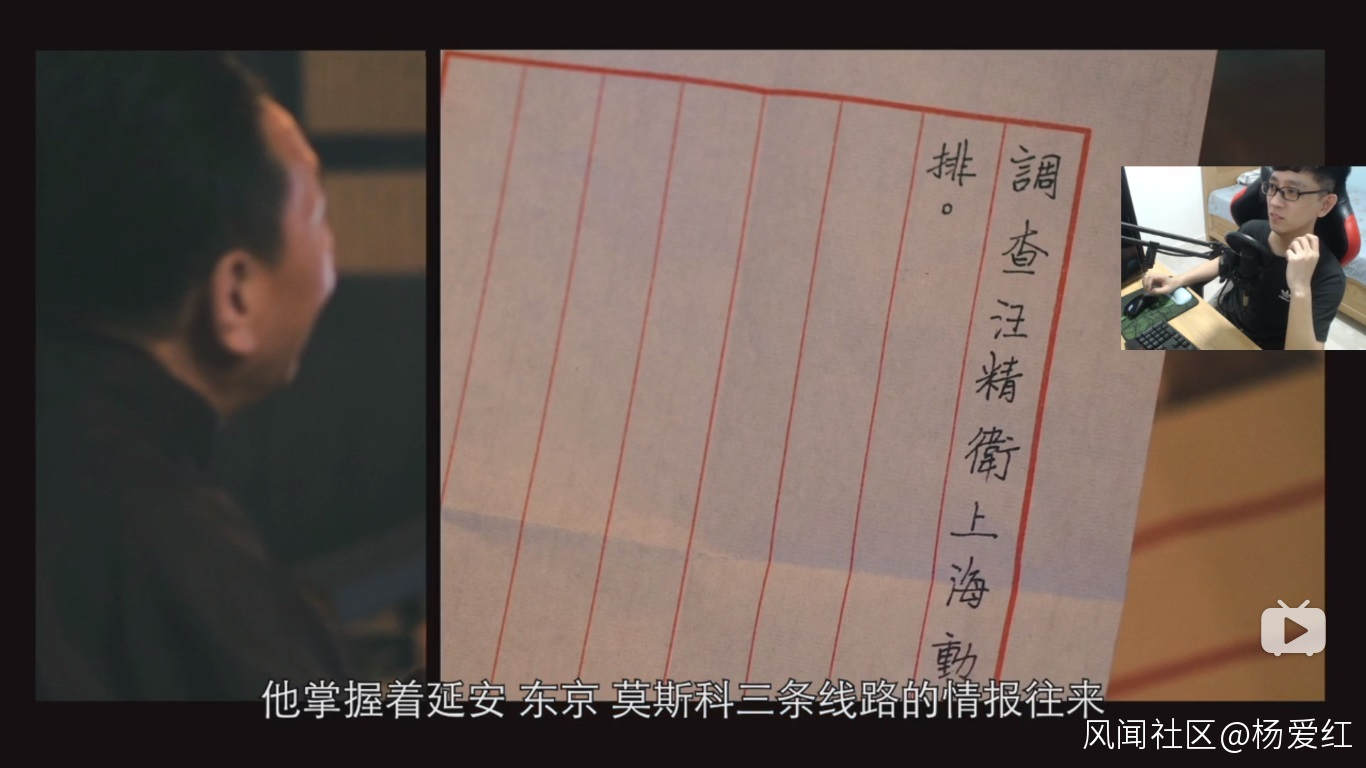 調查汪精衛上海動
排。
他掌握着延安 东京 莫斯科三条线路的情报往来
风闻社区@杨爱红